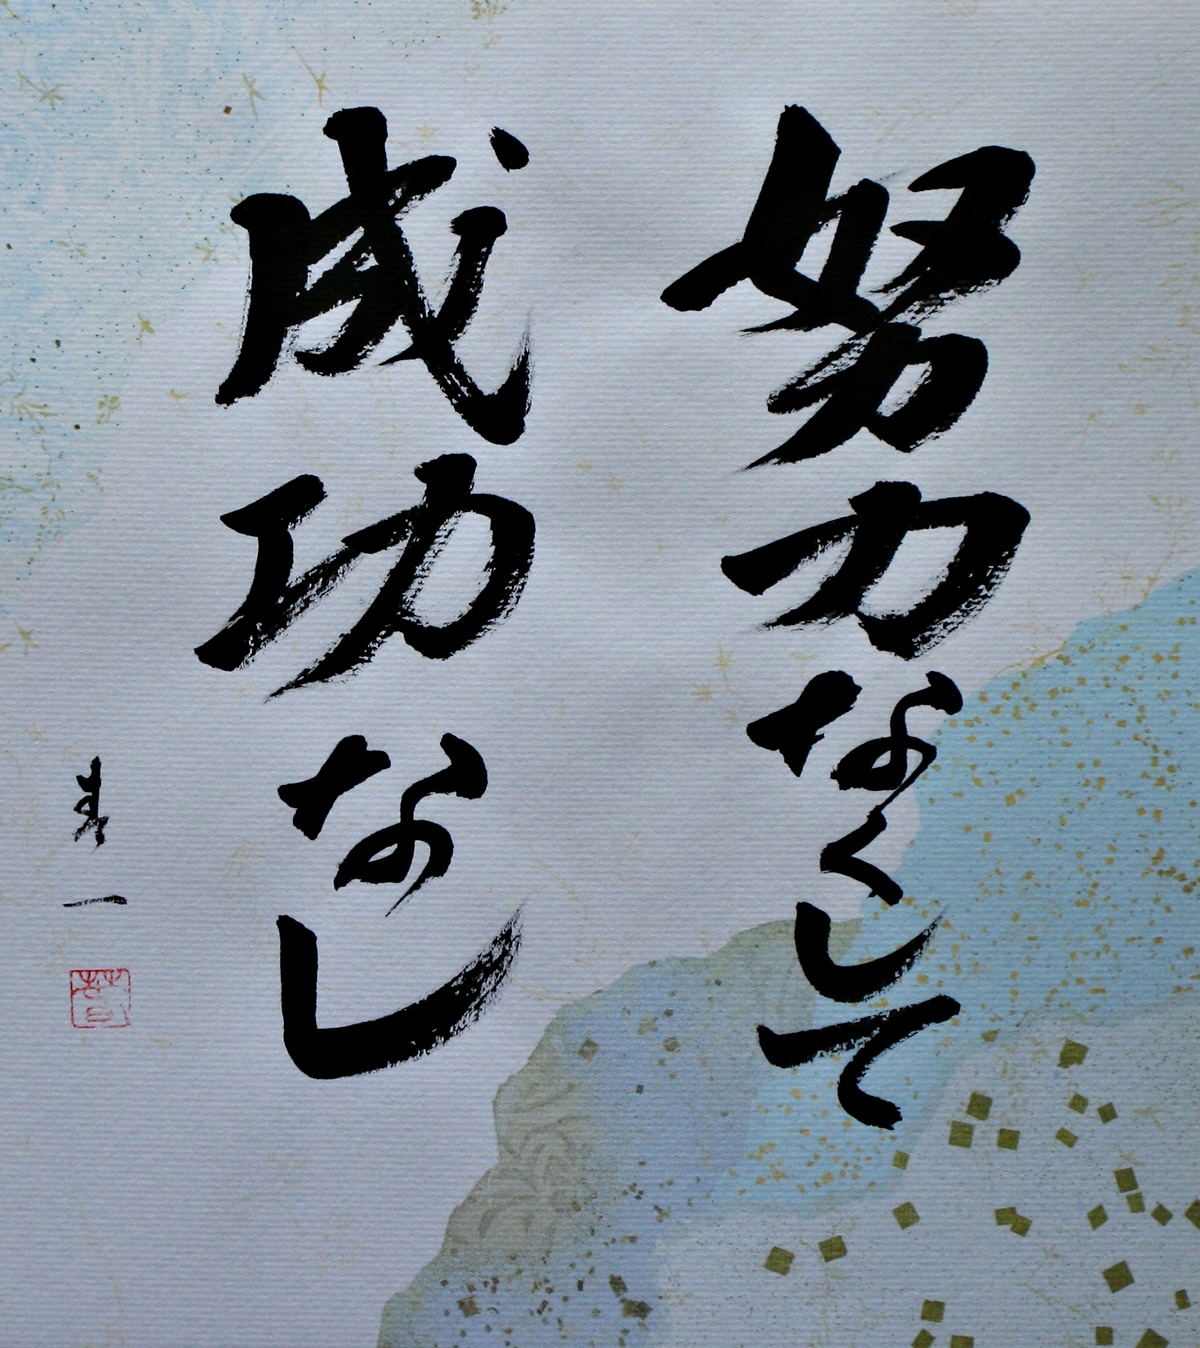 努力なくして
成功なし